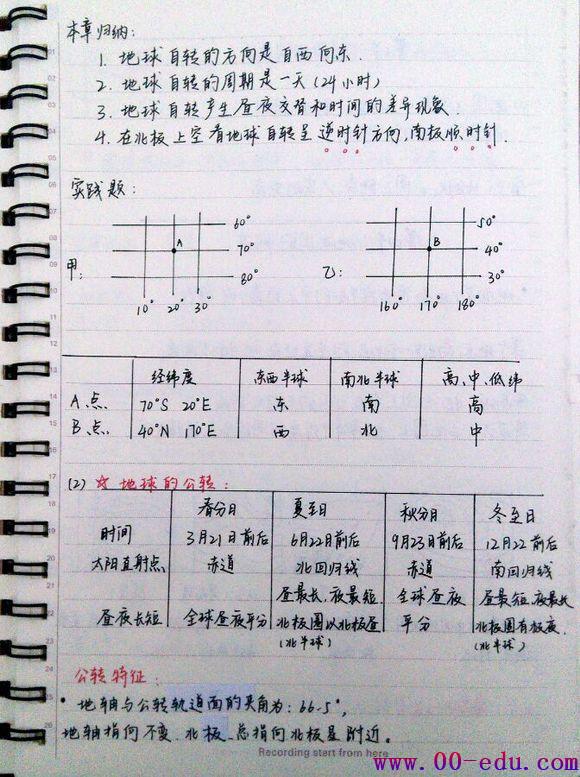 本章归纳:
1. 地球自转的方向是自西向东.
2. 地球自转的周期是一天(24小时)
3. 地球自转产生昼夜交替和时间的差异现象.
4. 在北极上空看地球自转呈逆时针方向,南极顺时针.
实践题:
甲: 60° 70° 80° A 10° 20° 30°
乙: 50° 40° 30° B 160° 170° 180°
经纬度 东西半球 南北半球 高、中、低纬
A点 70°S 20°E 东 南 高
B点 40°N 170°E 西 北 中
(2) ☆ 地球的公转:
春分日 夏至日 秋分日 冬至日
时间 3月21日前后 6月22日前后 9月23日前后 12月22前后
太阳直射点 赤道 北回归线 赤道 南回归线
昼最长.夜最短. 全球昼夜 昼最短.夜最长
昼夜长短 全球昼夜平分 北极圈以北极昼 平分 北极圈有极夜.
(北半球) (北半球)
公转特征:
• 地轴与公转轨道面的夹角为:66.5°,
地轴指向不变.北极总指向北极星附近。
Recording start from here
www.00-edu.com